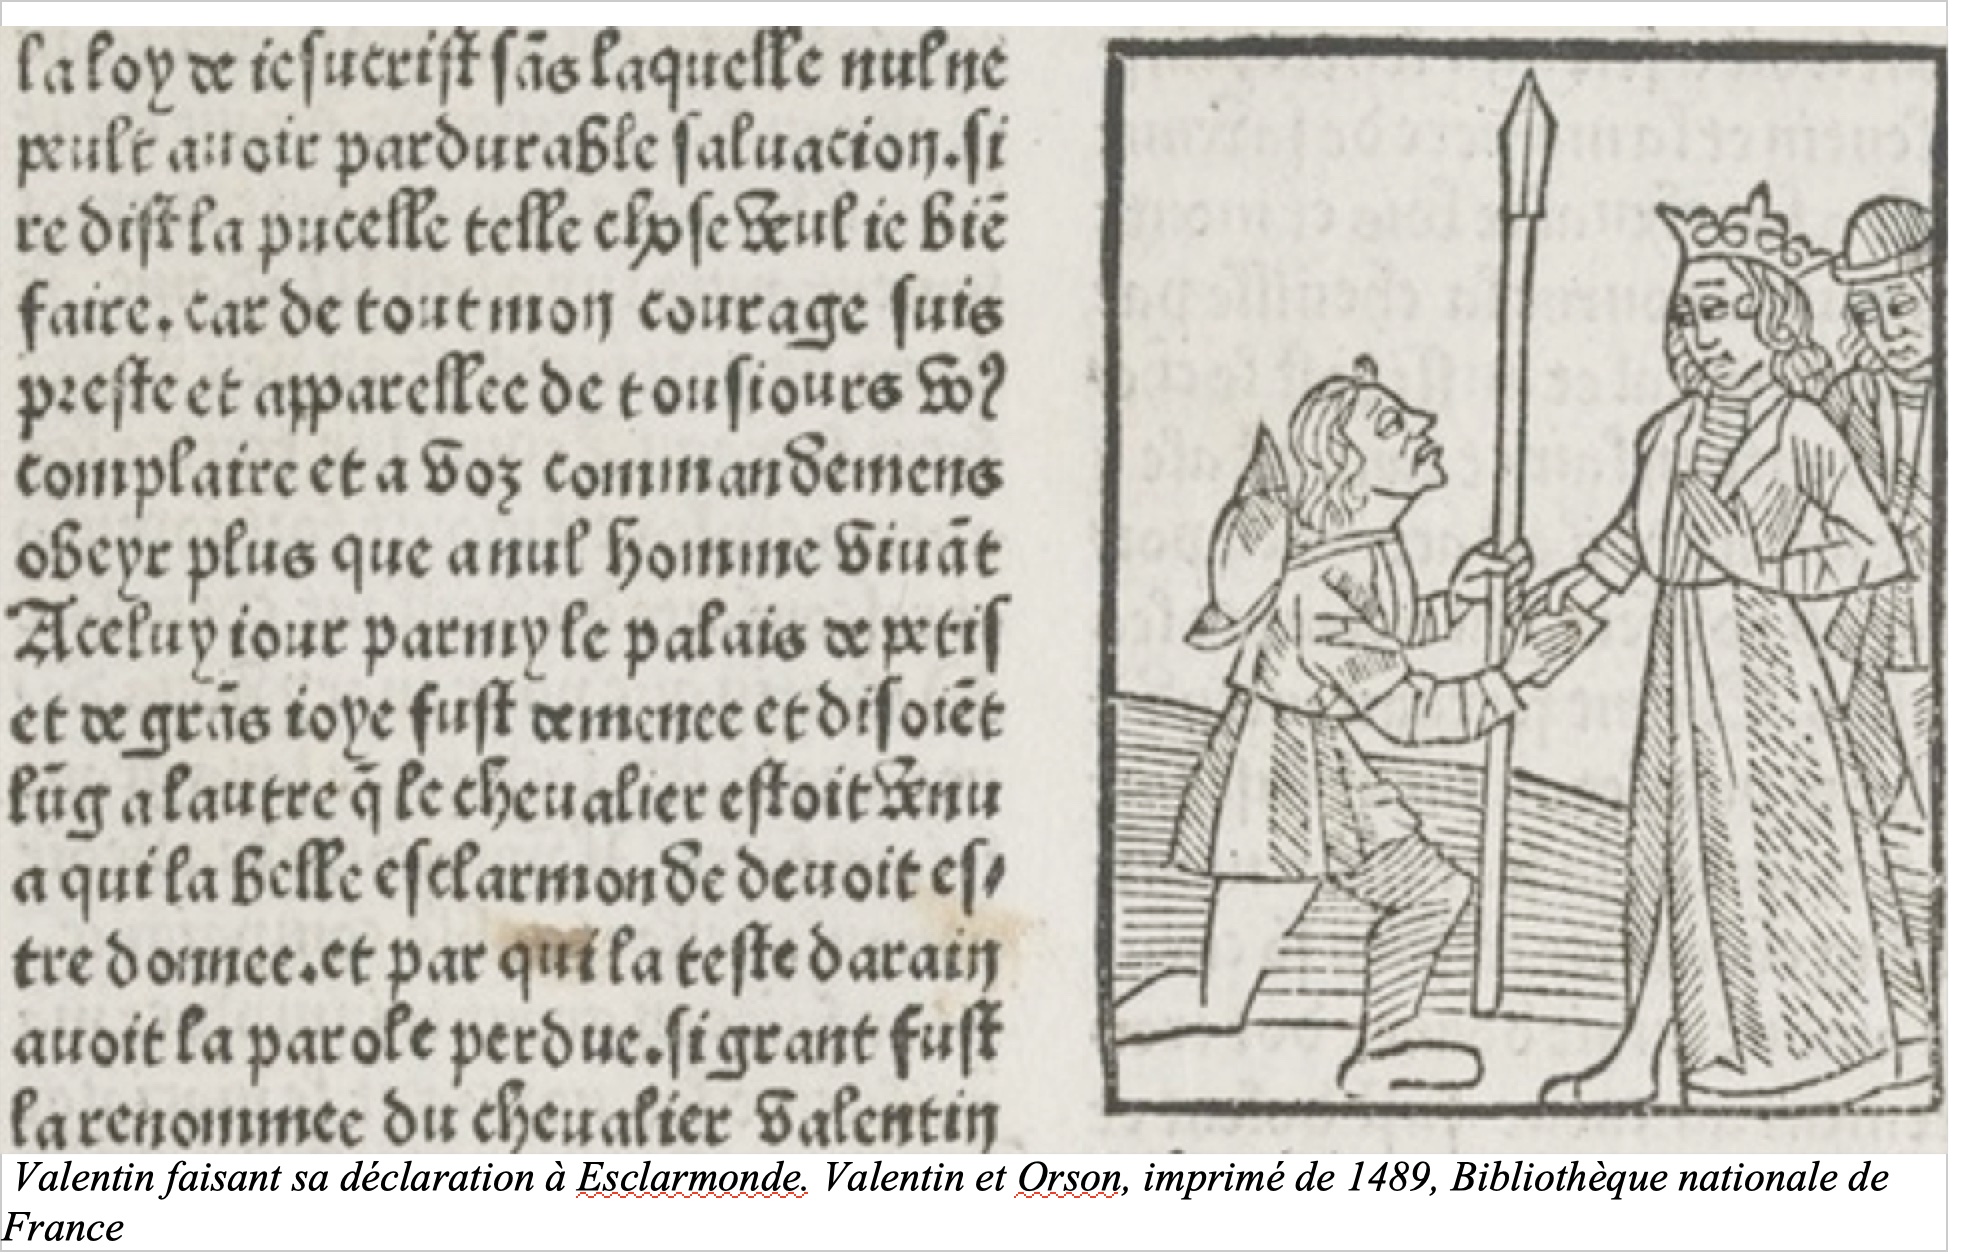 la loy de iesucrist sãs laquelle nul ne
peult auoir pardurable saluacion. si
re dist la pucelle telle chose veul ie biẽ
faire. car de tout mon courage suis
preste et apparellee de tousiours vo⁹
complaire et a voz commandemens
obeyr plus que a nul homme viuãt
A celuy iour parmy le palais de petis
et de grãs ioye fust demenee et disoiẽt
lũg a lautre q̃ le cheualier estoit venu
a qui la belle esclarmonde deuoit es⸗
tre donnee. et par qui la teste darain
auoit la parole perdue. si grant fust
la renommee du cheualier valentin
Valentin faisant sa déclaration à Esclarmonde. Valentin et Orson, imprimé de 1489, Bibliothèque nationale de
France